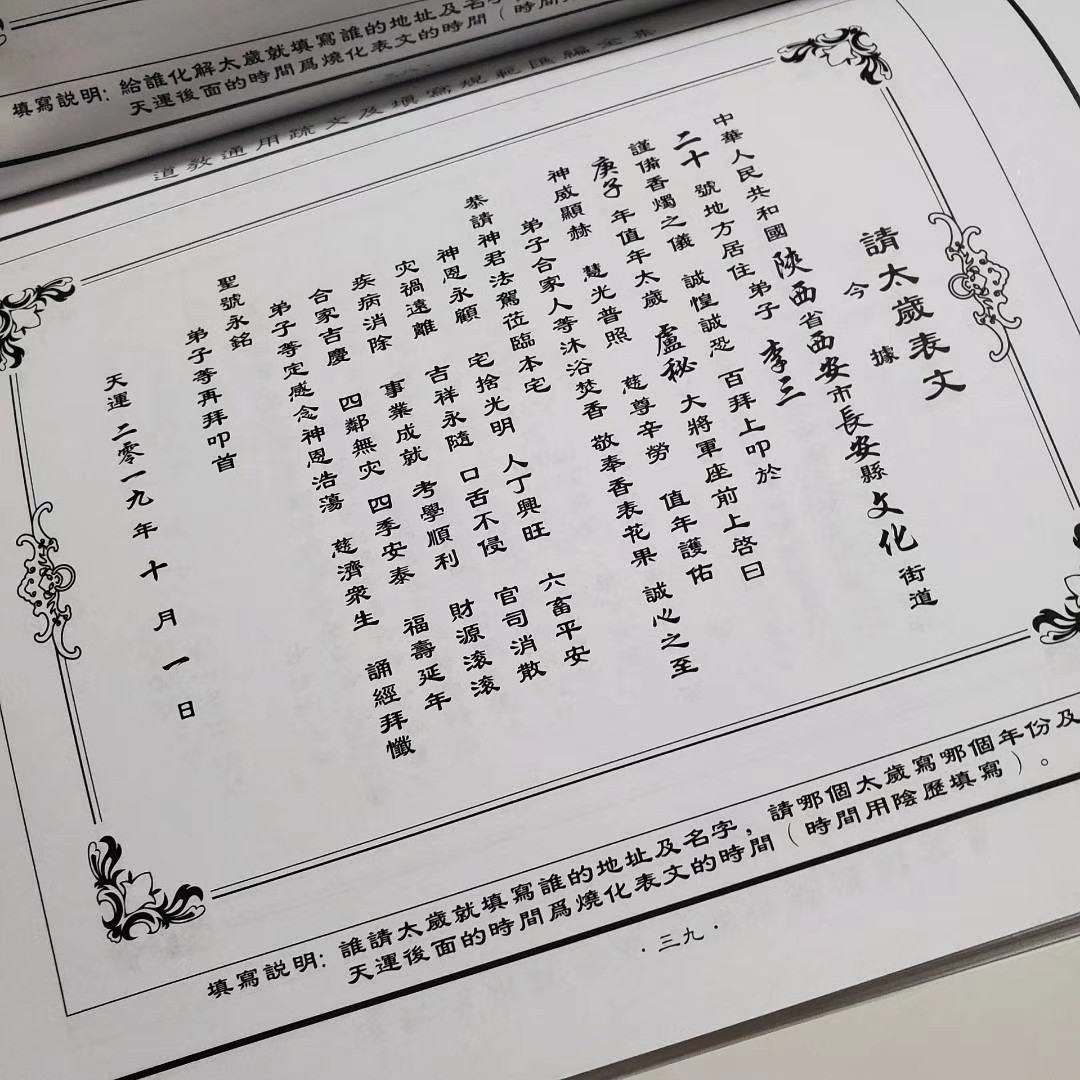 填寫説明：給誰化解太歲就填寫誰的地址及名字
天運後面的時間爲燒化表文的時間（時間
·三八·
道教通用疏文及填寫規範匯編全集
請太歲表文
今據
中華人民共和國陝西省西安市長安縣文化街道
二十號地方居住弟子 李三
謹備香燭之儀 誠惶誠恐 百拜上叩於
庚子年值年太歲 盧秘 大將軍座前上啓曰
神威顯赫 慧光普照 慈尊辛勞 值年護佑
弟子合家人等沐浴焚香 敬奉香表花果 誠心之至
恭請神君法駕莅臨本宅
神恩永顧 宅捨光明 人丁興旺 六畜平安
灾禍遠離 吉祥永隨 口舌不侵 官司消散
疾病消除 事業成就 考學順利 財源滚滚
合家吉慶 四鄰無灾 四季安泰 福壽延年
弟子等定感念神恩浩蕩 慈濟衆生 誦經拜懺
聖號永銘
弟子等再拜叩首
天運二零一九年十月一日
填寫説明：誰請太歲就填寫誰的地址及名字，請哪個太歲寫哪個年份及
天運後面的時間爲燒化表文的時間（時間用陰歷填寫）。
·三九·